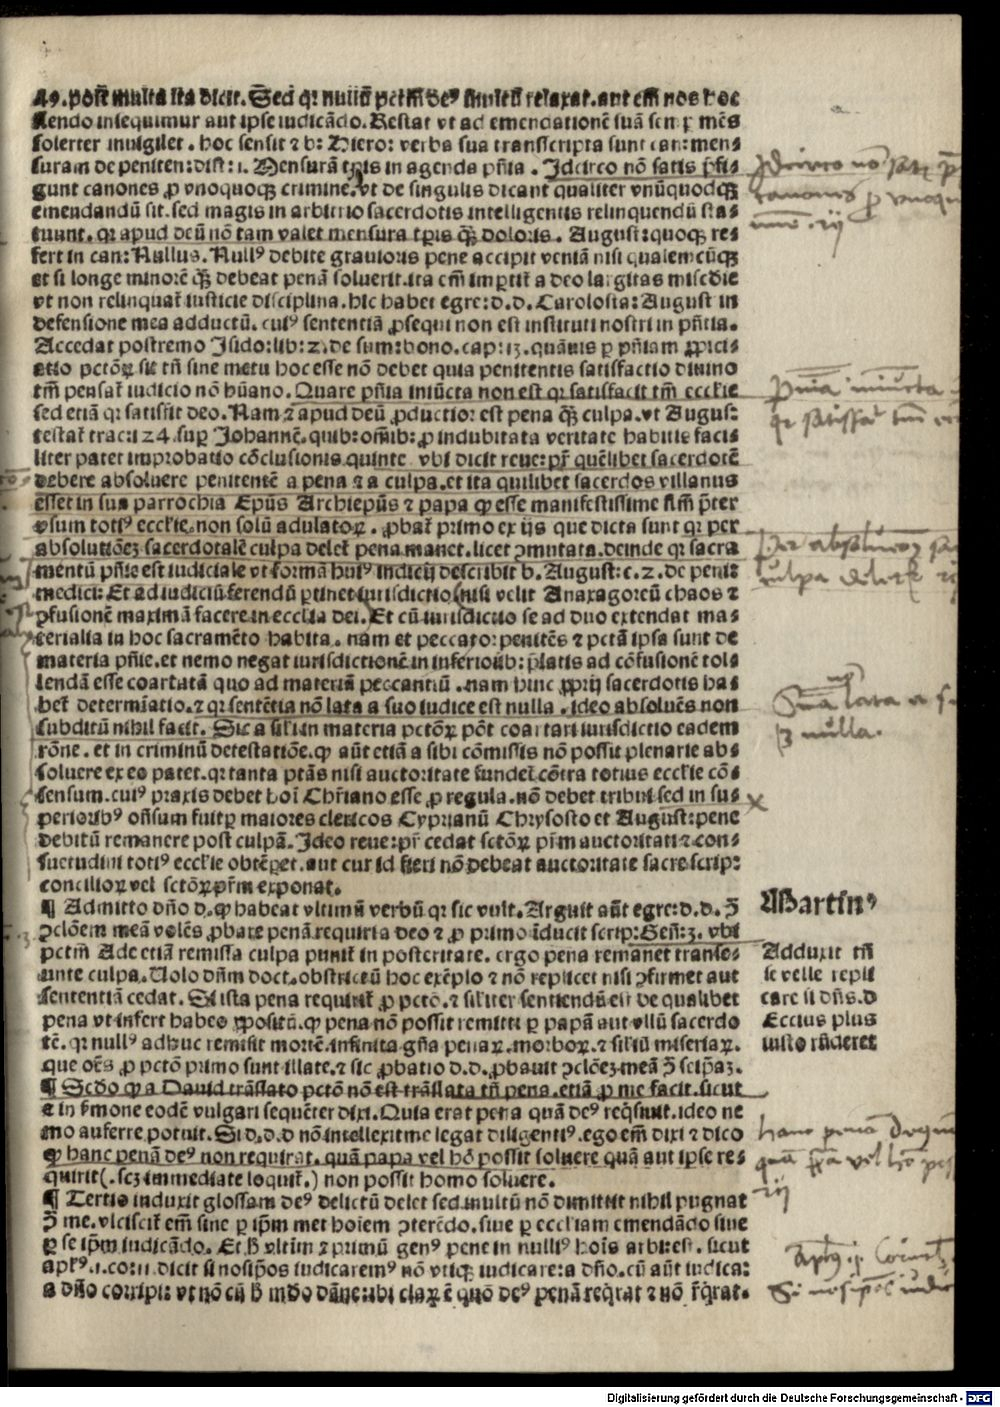 49. post multa ita dicit. Sed qr nullū pctm̄ deꝰ inultū relaxat. aut em̄ nos hoc
flendo insequimur aut ipse iudicādo. Restat vt ad emendationē suā semp mēs
solerter inuigilet. hoc sensit ⁊ b: Hiero: verba sua transscripta sunt can: men⸗
suram de peniten: dist: 1. Mensurā tp̄is in agenda pn̄ia. Idcirco nō satis p̄fi⸗
gunt canones ꝓ vnoquoqꝫ crimine. vt de singulis dicant qualiter vnūquodqꝫ
emendandū sit. sed magis in arbitrio sacerdotis intelligentis relinquendū sta⸗
tuunt. qr apud deū nō tam valet mensura tp̄is qꝫ̄ doloris. August: quoqꝫ re⸗
fert in can: Nullus. Nullꝰ debite grauioris pene accipit veniā nisi qualemcūqꝫ
et si longe minorē qꝫ̄ debeat penā soluerit. ita em̄ impertit̄ a deo largitas mis̄c̄die
vt non relinquat̄ iusticie disciplina. hic habet egre: d. d. Carolosta: August in
defensione mea adductū. cuiꝰ sententiā ꝓsequi non est instituti nostri in pn̄tia.
Accedat postremo Isido: lib: 2. de sum: bono. cap: 13. quāuis ꝑ pn̄iam ꝓpici⸗
atio pctōꝝ sit tn̄ sine metu hoc esse nō debet quia penitentis satisfactio diuino
tm̄ pensat̄ iudicio nō hūano. Quare pn̄ia iniūcta non est qr satisfacit tm̄ eccl̄ie
sed etiā qr satisfit deo. Nam ⁊ apud deū ꝓductior est pena qꝫ̄ culpa. vt Augus:
testat̄ trac: 124. sup̱ Johannē. quib: om̄ib: ꝓ indubitata veritate habitis faci⸗
liter patet improbatio cōclusionis quinte vbi dicit reue: pr̄ quēlibet sacerdotē
debere absoluere penitentē a pena ⁊ a culpa. et ita quilibet sacerdos villanus
esset in sua parrochia Ep̄us Archiep̄us ⁊ papa qp esse manifestissime f̄lm p̄ter
vsum totiꝰ eccl̄ie. non solū adulatoꝝ. ꝓbat̄ primo ex ijs que dicta sunt qr per
absolutiōeꝫ sacerdotalē culpa delet̄ pena manet. licet ꝯmutata. deinde qr sacra
mentū pn̄ie est iudiciale vt formā huiꝰ iudicij describit b. August: c. 2. de peni:
medici: Et ad iudiciū ferendū ꝑtinet iurisdictio (nisi velit Anaxagoreū chaos ⁊
ꝯfusionē maximā facere in ecclia dei. Et cū iurisdictio se ad duo extendat ma⸗
terialia in hoc sacramēto habita. nam et peccator: penitēs ⁊ pctā ipsa sunt de
materia pn̄ie. et nemo negat iurisdictionē in inferiorib: p̄latis ad cōfusionē tol⸗
lendā esse coartatā quo ad materiā peccantiū. nam hinc ꝓprij sacerdotis ha⸗
bet̄ determīatio. ⁊ qr sentētia nō lata a suo iudice est nulla. ideo absoluēs non
subditū nihil facit. Sic a sil̄i in materia pctōꝝ pōt coartari iurisdictio eadem
rōne. et in criminū detestatiōe. qp aūt etiā a sibi cōmissis nō possit plenarie ab⸗
soluere ex eo patet. qr tanta ptās nisi auctoritate fundet̄ cōtra totius eccl̄ie cō⸗
sensum. cuiꝰ praxis debet hoi Chr̄iano esse ꝓ regula. nō debet tribui sed in su⸗
periorib: on̄sum fuit ꝑ maiores clericos Cyprianū Chrysosto et August: pene
debitū remanere post culpā. Ideo reue: pr̄ cedat sctōꝝ pr̄m auctoritati ⁊ con⸗
suetudini totiꝰ eccl̄ie obtēꝑet. aut cur id fieri nō debeat auctoritate sacre scrip:
concilioꝝ vel sctōꝝ pr̄m exponat.
¶ Admitto dn̄o d. qp habeat vltimū verbū qr sic vult. Arguit aūt egre: d. d. ↄ̄
ꝯclōem meā volēs ꝓbare penā requiri a deo ⁊ ꝓ primo īducit scrip: Gen̄: 3. vbi
pctm̄ Ade etiā remissa culpa punit̄ in posteritate. ergo pena remanet transe⸗
unte culpa. Uolo dn̄m doct. obstrictū hoc exēplo ⁊ nō replicet nisi ꝯfirmet aut
sententiā cedat. Si ista pena requirit̄ ꝓ pctō. ⁊ sil̄iter sentiendū est de qualibet
pena vt infert habeo ꝓpositū. qp pena nō possit remitti ꝑ papā aut vllū sacerdo
tē. qr nullꝰ adhuc remisit mortē. infinita gn̄a penaꝝ. morboꝝ. ⁊ sil̄iū miseriaꝝ.
que oēs ꝓ pctō primo sunt illate. ⁊ sic ꝓbatio d. d. ꝓbauit ꝯclōeꝫ meā ↄ̄ scip̄aꝫ.
¶ Scd̄o qp a Dauid trāslato pctō nō est trāslata tn̄ pena. etiā ꝓ me facit. sicut
⁊ in s̄mone eodē vulgari sequēter dixi. Quia erat pena quā deꝰ reqsiuit. ideo ne
mo auferre potuit. Si d. d. d nō intellexit me legat diligentiꝰ. ego em̄ dixi ⁊ dico
qp hanc penā deꝰ non requirat. quā papa vel hō possit soluere quā aut ipse re⸗
quirit (. scꝫ immediate loquit̄.) non possit homo soluere.
¶ Tertio induxit glossam deꝰ delictū delet sed inultū nō dimittit nihil pugnat
ↄ̄ me. vlciscit̄ em̄ siue ꝑ ip̄m met hoiem ꝯterēdo. siue ꝑ eccl̄iam emendādo siue
ꝑ se ip̄m iudicādo. Et h̄ vltim̄ ⁊ primū genꝰ pene in nulliꝰ hoīs arbi: est. sicut
apl̄ꝰ. 1. cor: 11. dicit si nosip̄os iudicaremꝰ nō vtiqꝫ iudicare: a dn̄o. cū aūt iudica:
a dn̄o corripi: vt nō cū h̄ mūdo dāne: ubi claꝝ ē quō deꝰ penā reqrat ⁊ nō reqrat.
Martinꝰ
Adduxit tn̄
se velle repli
care si dn̄s. d
Eccius plus
iusto rn̄deret
Idcirco nō satis p̄
canones ꝓ vnoqu
Pn̄ia iniūcta
qr satisfac tm̄ ecc
Per absolutōeꝫ sa
culpa delet̄
Sn̄ia lata a s
ē nulla.
hanc penā deꝰ nō
quā papa vel hō pos
Aplꝰ .1. Corint.
Si nosip̄os iudic
Digitalisierung gefördert durch die Deutsche Forschungsgemeinschaft - DFG